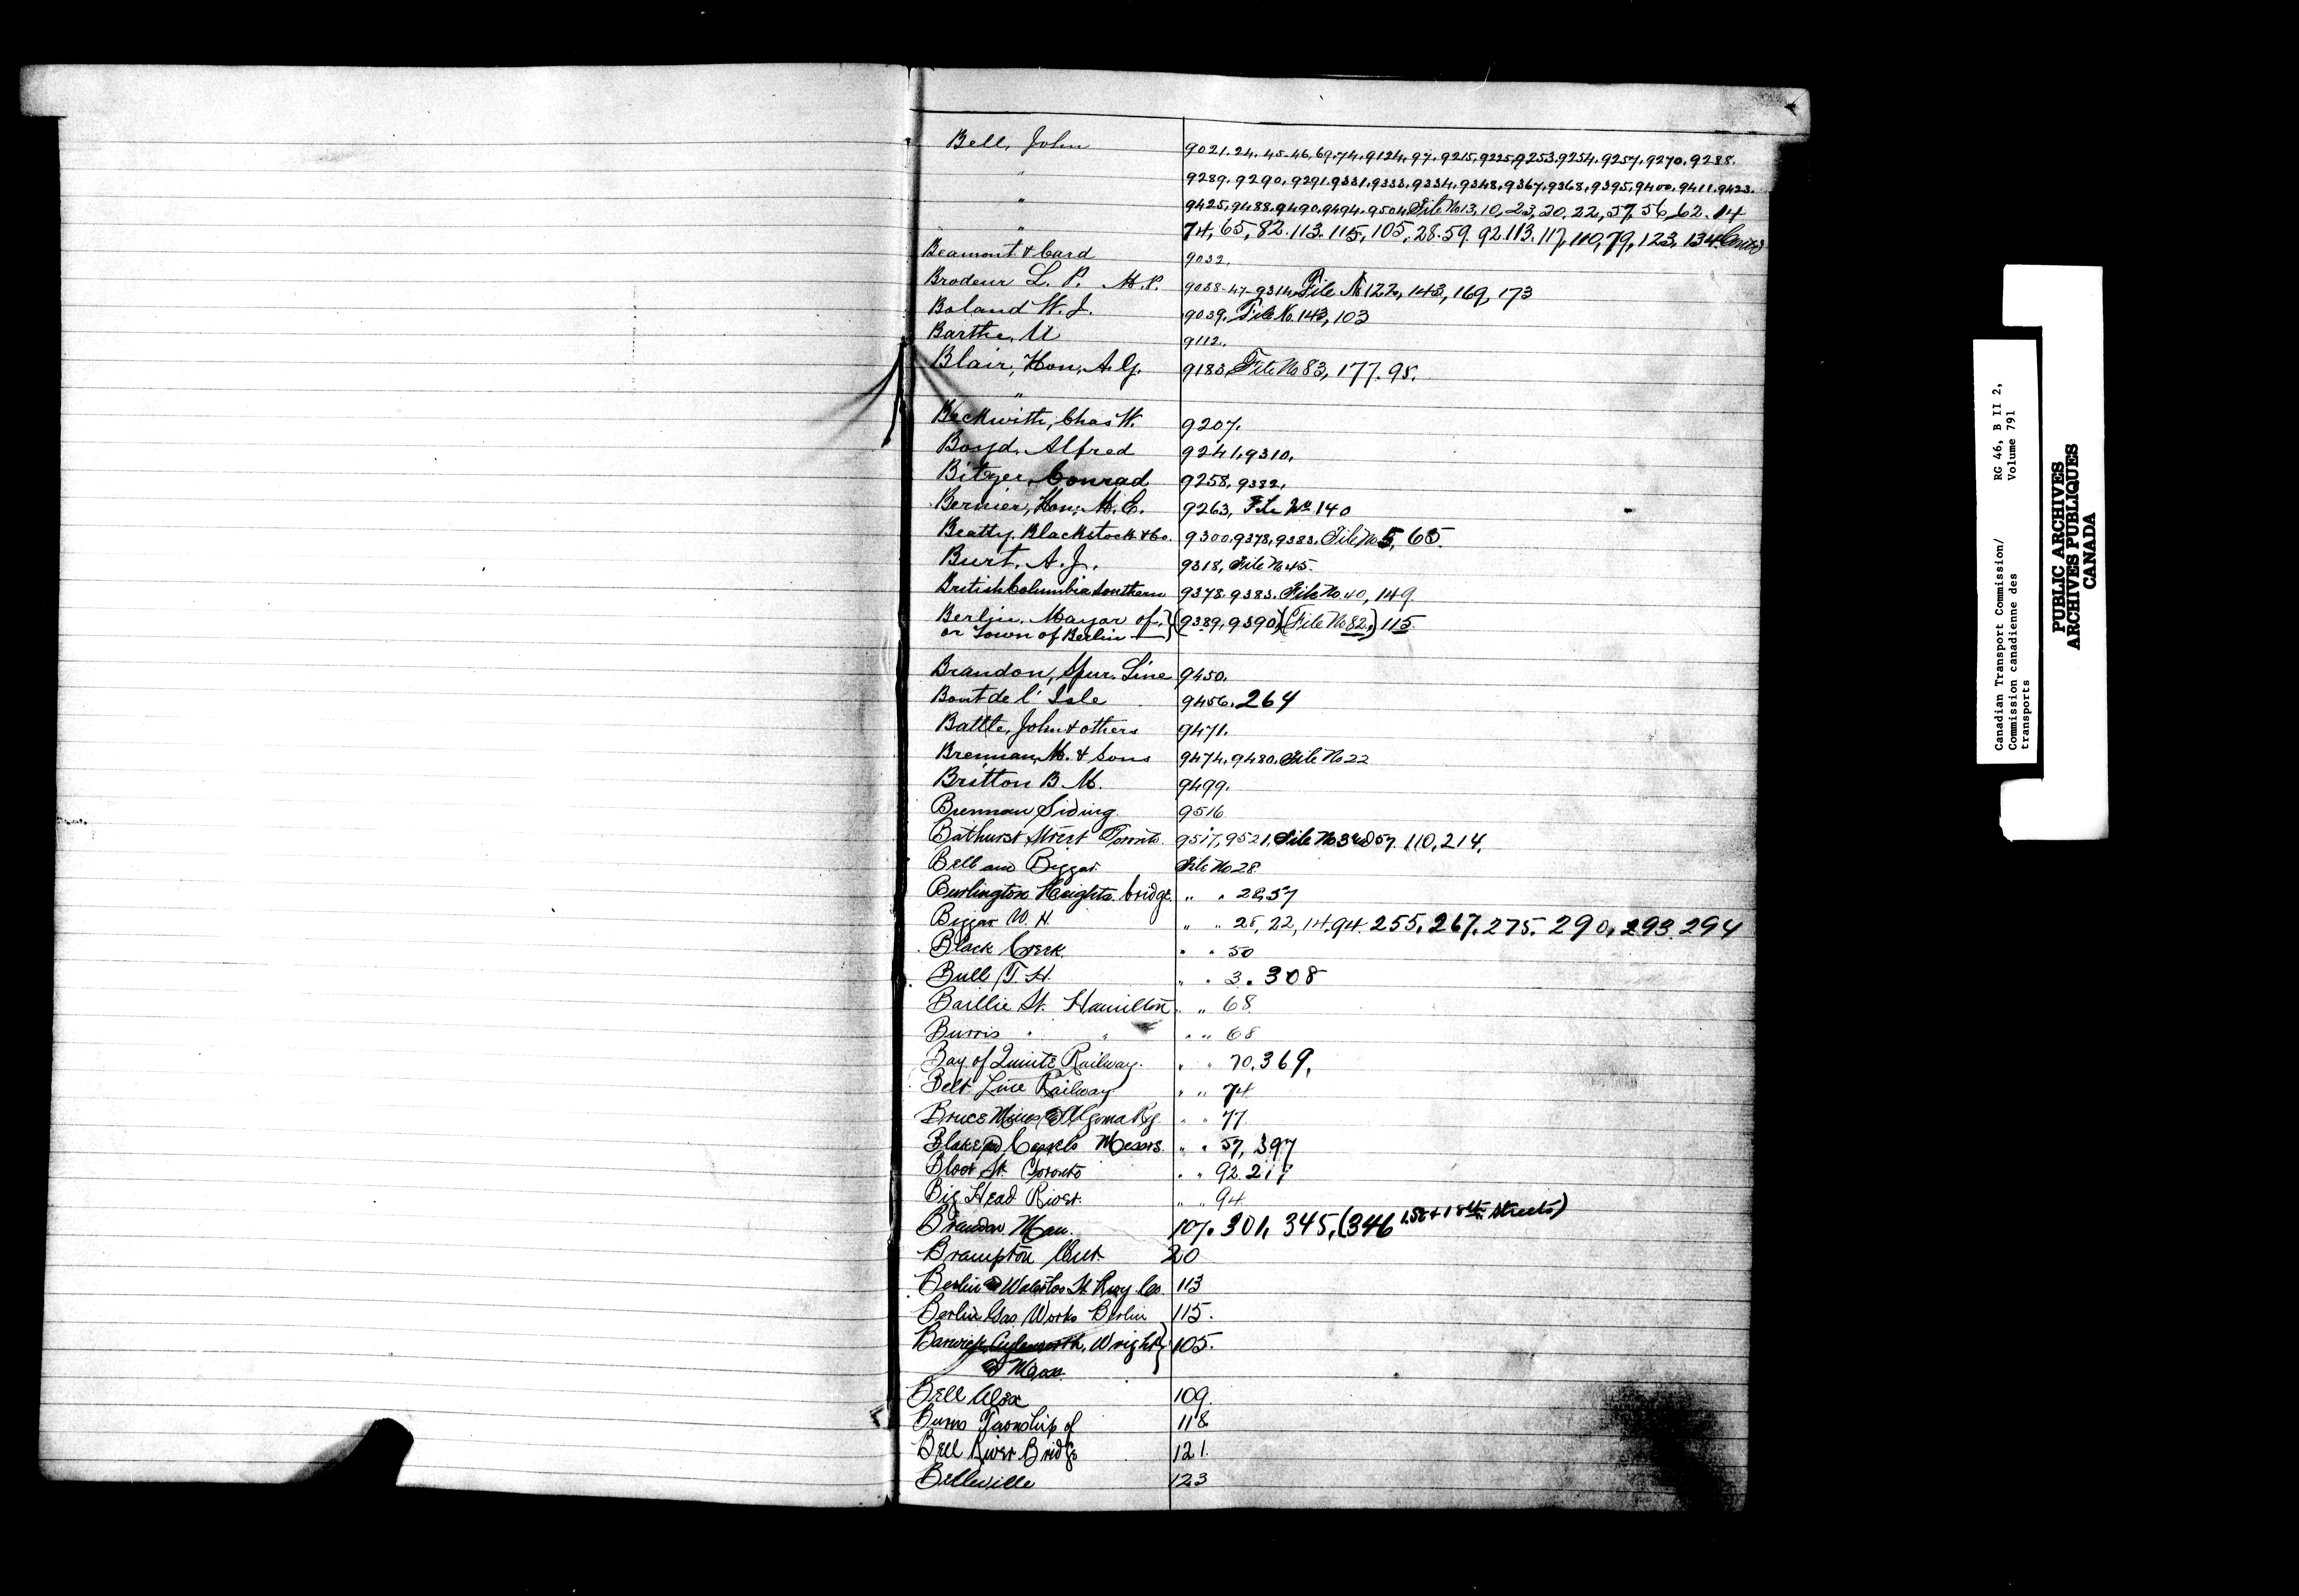 Bell, John 9021. 24. 45-46, 69, 74, 9124, 97, 9215, 9225, 9253, 9254, 9257, 9270, 9288.
" 9289, 9290, 9291, 9331, 9333, 9334, 9348, 9367, 9368, 9395, 9400, 9411, 9423.
" 9425, 9488, 9490, 9494, 9504, File No 13, 10, 23, 20, 22, 57, 56, 62. 14
" 74, 65, 82. 113. 115, 105, 28. 59. 92. 113. 117, 110, 79, 123, 134
Beamont & Card 9032.
Brodeur L. P. M.P. 9038-47-9314, File No 122, 143, 169, 173
Boland W. J. 9039. File No. 143, 103
Barthe, U 9112.
Blair, Hon. A. G. 9183, File No 83, 177. 95.
"
Beckwith, Chas W. 9207.
Boyd, Alfred 9241, 9310.
Bitzer, Conrad 9258, 9382,
Bernier, Hon, M. E. 9263, File No 140
Beatty, Blackstock & Co. 9300, 9378, 9383, File No 5, 65.
Burt, A. J. 9318, File No 45.
British Columbia Southern 9378. 9383. File No. 40, 149
Berlin, Mayor of, } (9389, 9390) (File No 82,) 115.
or Town of Berlin }
Brandon, Spur Line 9450.
Bout de l'Isle 9456. 264
Battle, John & others 9471.
Brennan, M. & Sons 9474, 9480, File No 22
Britton B. M. 9499.
Brennan Siding 9516
Bathurst Street Toronto. 9517, 9521, File No 3 and 57. 110, 214,
Bell and Biggar File No 28
Burlington Heights bridge. " " 28, 57
Biggar W. H. " " 28, 22, 14, 94. 255, 267, 275, 290, 293. 294
Black Creek. " " 50
Bull T. H. " " 3. 308
Baillie St. Hamilton " " 68
Burris " " " " 68
Bay of Quinte Railway. " " 70, 369,
Belt Line Railway " " 74
Bruce Mines & Algoma Ry. " " 77
Blake and Cassels Messrs. " " 57, 397
Bloor St. Toronto " " 92. 217
Big Head River. " " 94
Brandon Man. 107. 301, 345, (346 1st & 18th Streets)
Brampton Ont. 20
Berlin and Waterloo St. Rwy. Co. 113
Berlin Gas Works Berlin 115.
Barwick, Aylesworth, Wright } 105.
& Moss }
Bell Alex 109.
Burns Township of 118
Bell River Bridge 121.
Belleville 123
Canadian Transport Commission/ RG 46, B II 2,
Commission canadienne des Volume 791
transports
PUBLIC ARCHIVES
ARCHIVES PUBLIQUES
CANADA